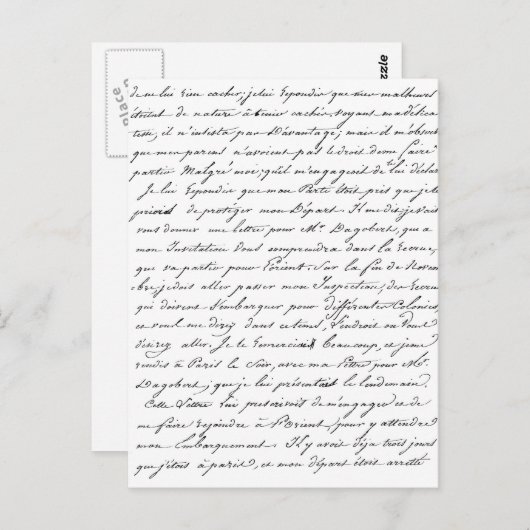 Place
zazzle
de ne lui rien cacher; je lui repondir que mes malheurs
étoient de nature à tenir cachés, voyant ma délica
tesse, il n'insista pas Davantage; mais il m'observa
que mes parens n'avoient pas le droit de me faire
partir Malgré moi; qu'il m'engageoit de lui déclar
Je lui repondir que mon Parti étoit pris que je le
priois de protéger mon Départ. Il me dit; je vais
vous donner une lettre pour Mr. Dagobert, qui a
mon Invitation vous comprendra dans la recrue,
que va partir pour l'orient. Sur la fin de Novem
bre, je dois aller passer mon Inspection, des recrues
qui doivent s'embarquer pour différentes Colonies,
et vous me direz dans ce tems, l'endroit ou vous
désirez aller. Je le remerciai beaucoup, et je me
rendis à Paris le Soir, avec ma lettre pour Mr.
Dagobert, que je lui présentois le lendemain.
Cette lettre lui prescrivoit de m'engager et de
me faire rejoindre à l'orient, pour y attendre
mon Embarquement. Il y avoit déja trois jours
que j'étois à paris, et mon départ étoit arretté